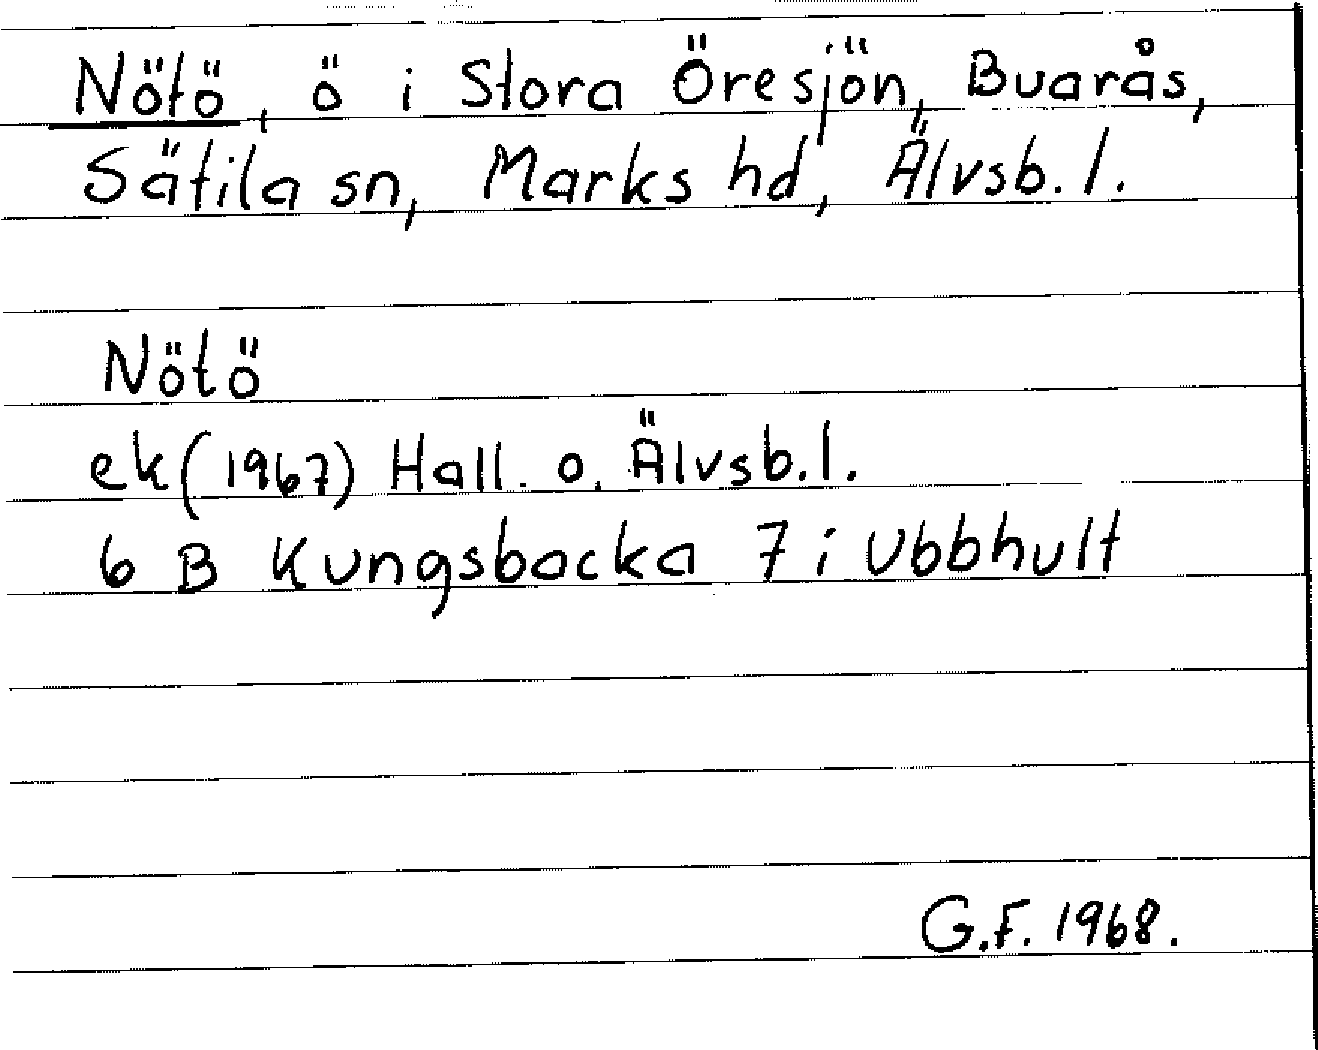 Nötö, ö i Stora Öresjön, Buarås,
Sätila sn, Marks hd, Älvsb. l.
Nötö
ek (1967) Hall. o. Älvsb. l.
6 B Kungsbacka 7 i Ubbhult
G.F. 1968.